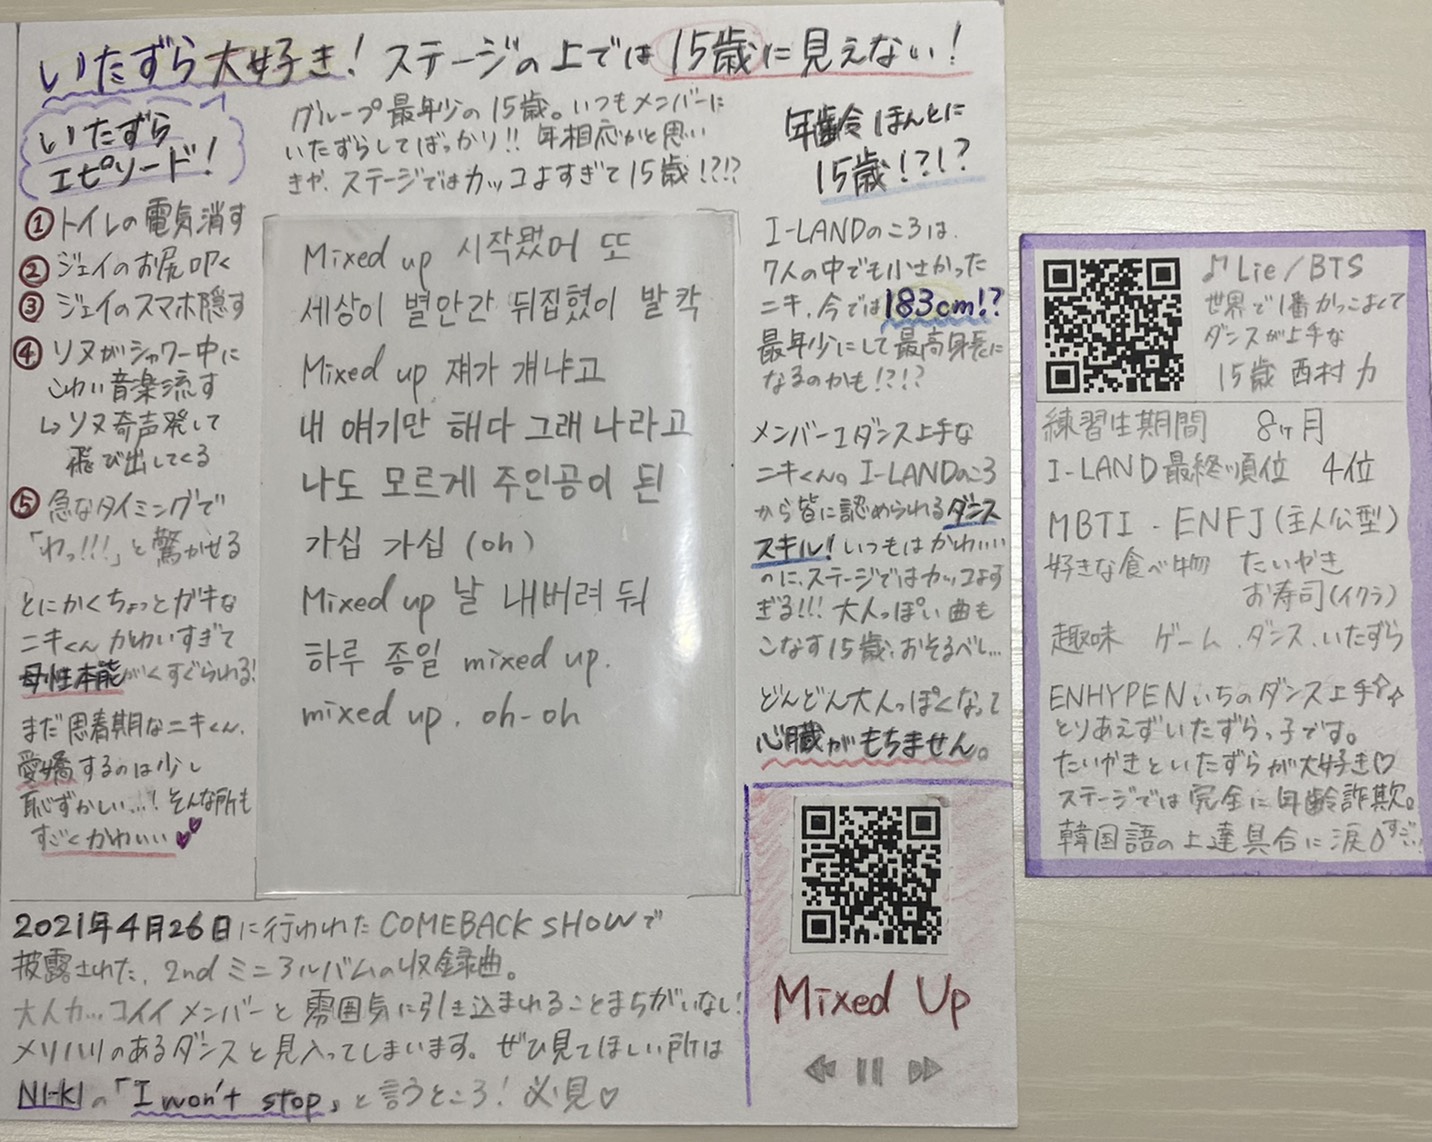 いたずら大好き！ステージの上では15歳に見えない！
いたずら
エピソード！
① トイレの電気消す
② ジェイのお尻叩く
③ ジェイのスマホ隠す
④ ソヌがシャワー中に
こわい音楽流す
↳ソヌ奇声発して
飛び出してくる
⑤ 急なタイミングで
「わっ!!!」と驚かせる
とにかくちょっとガキな
ニキくんかわいすぎて
母性本能がくすぐられる!
まだ思春期なニキくん、
愛嬌するのは少し
恥ずかしい...! そんな所も
すごくかわいい💕
グループ最年少の15歳。いつもメンバーに
いたずらしてばっかり!! 年相応かと思い
きや、ステージではカッコよすぎて15歳!?!?
Mixed up 시작됐어 또
세상이 별안간 뒤집혔이 발칵
Mixed up 쟤가 걔냐고
내 얘기만 해다 그래 나라고
나도 모르게 주인공이 된
가십 가십 (oh)
Mixed up 날 내버려 둬
하루 종일 mixed up.
mixed up. oh-oh
年齢ほんとに
15歳!?!?
I-LANDのころは、
7人の中でも小さかった
ニキ、今では183cm!?
最年少にして最高身長に
なるのかも!?!?
メンバー1ダンス上手な
ニキくん。I-LANDのころ
から皆に認められるダンス
スキル! いつもはかわいい
のに、ステージではカッコよす
ぎる!!! 大人っぽい曲も
こなす15歳、おそるべし...
どんどん大人っぽくなって
心臓がもちません。
2021年4月26日に行われたCOMEBACK SHOWで
披露された、2ndミニアルバムの収録曲。
大人カッコイイメンバーと雰囲気に引き込まれることまちがいない!
メリハリのあるダンスと見入ってしまいます。ぜひ見てほしい所は
NI-KIの「I won't stop」と言うところ! 必見♡
Mixed Up
♪Lie/BTS
世界で1番かっこよくて
ダンスが上手な
15歳 西村力
練習生期間 8ヶ月
I-LAND最終順位 4位
MBTI - ENFJ(主人公型)
好きな食べ物 たいやき
お寿司(イクラ)
趣味 ゲーム、ダンス、いたずら
ENHYPENいちのダンス上手✧
とりあえずいたずらっ子です。
たいやきといたずらが大好き♡
ステージでは完全に年齢詐欺。
韓国語の上達具合に涙